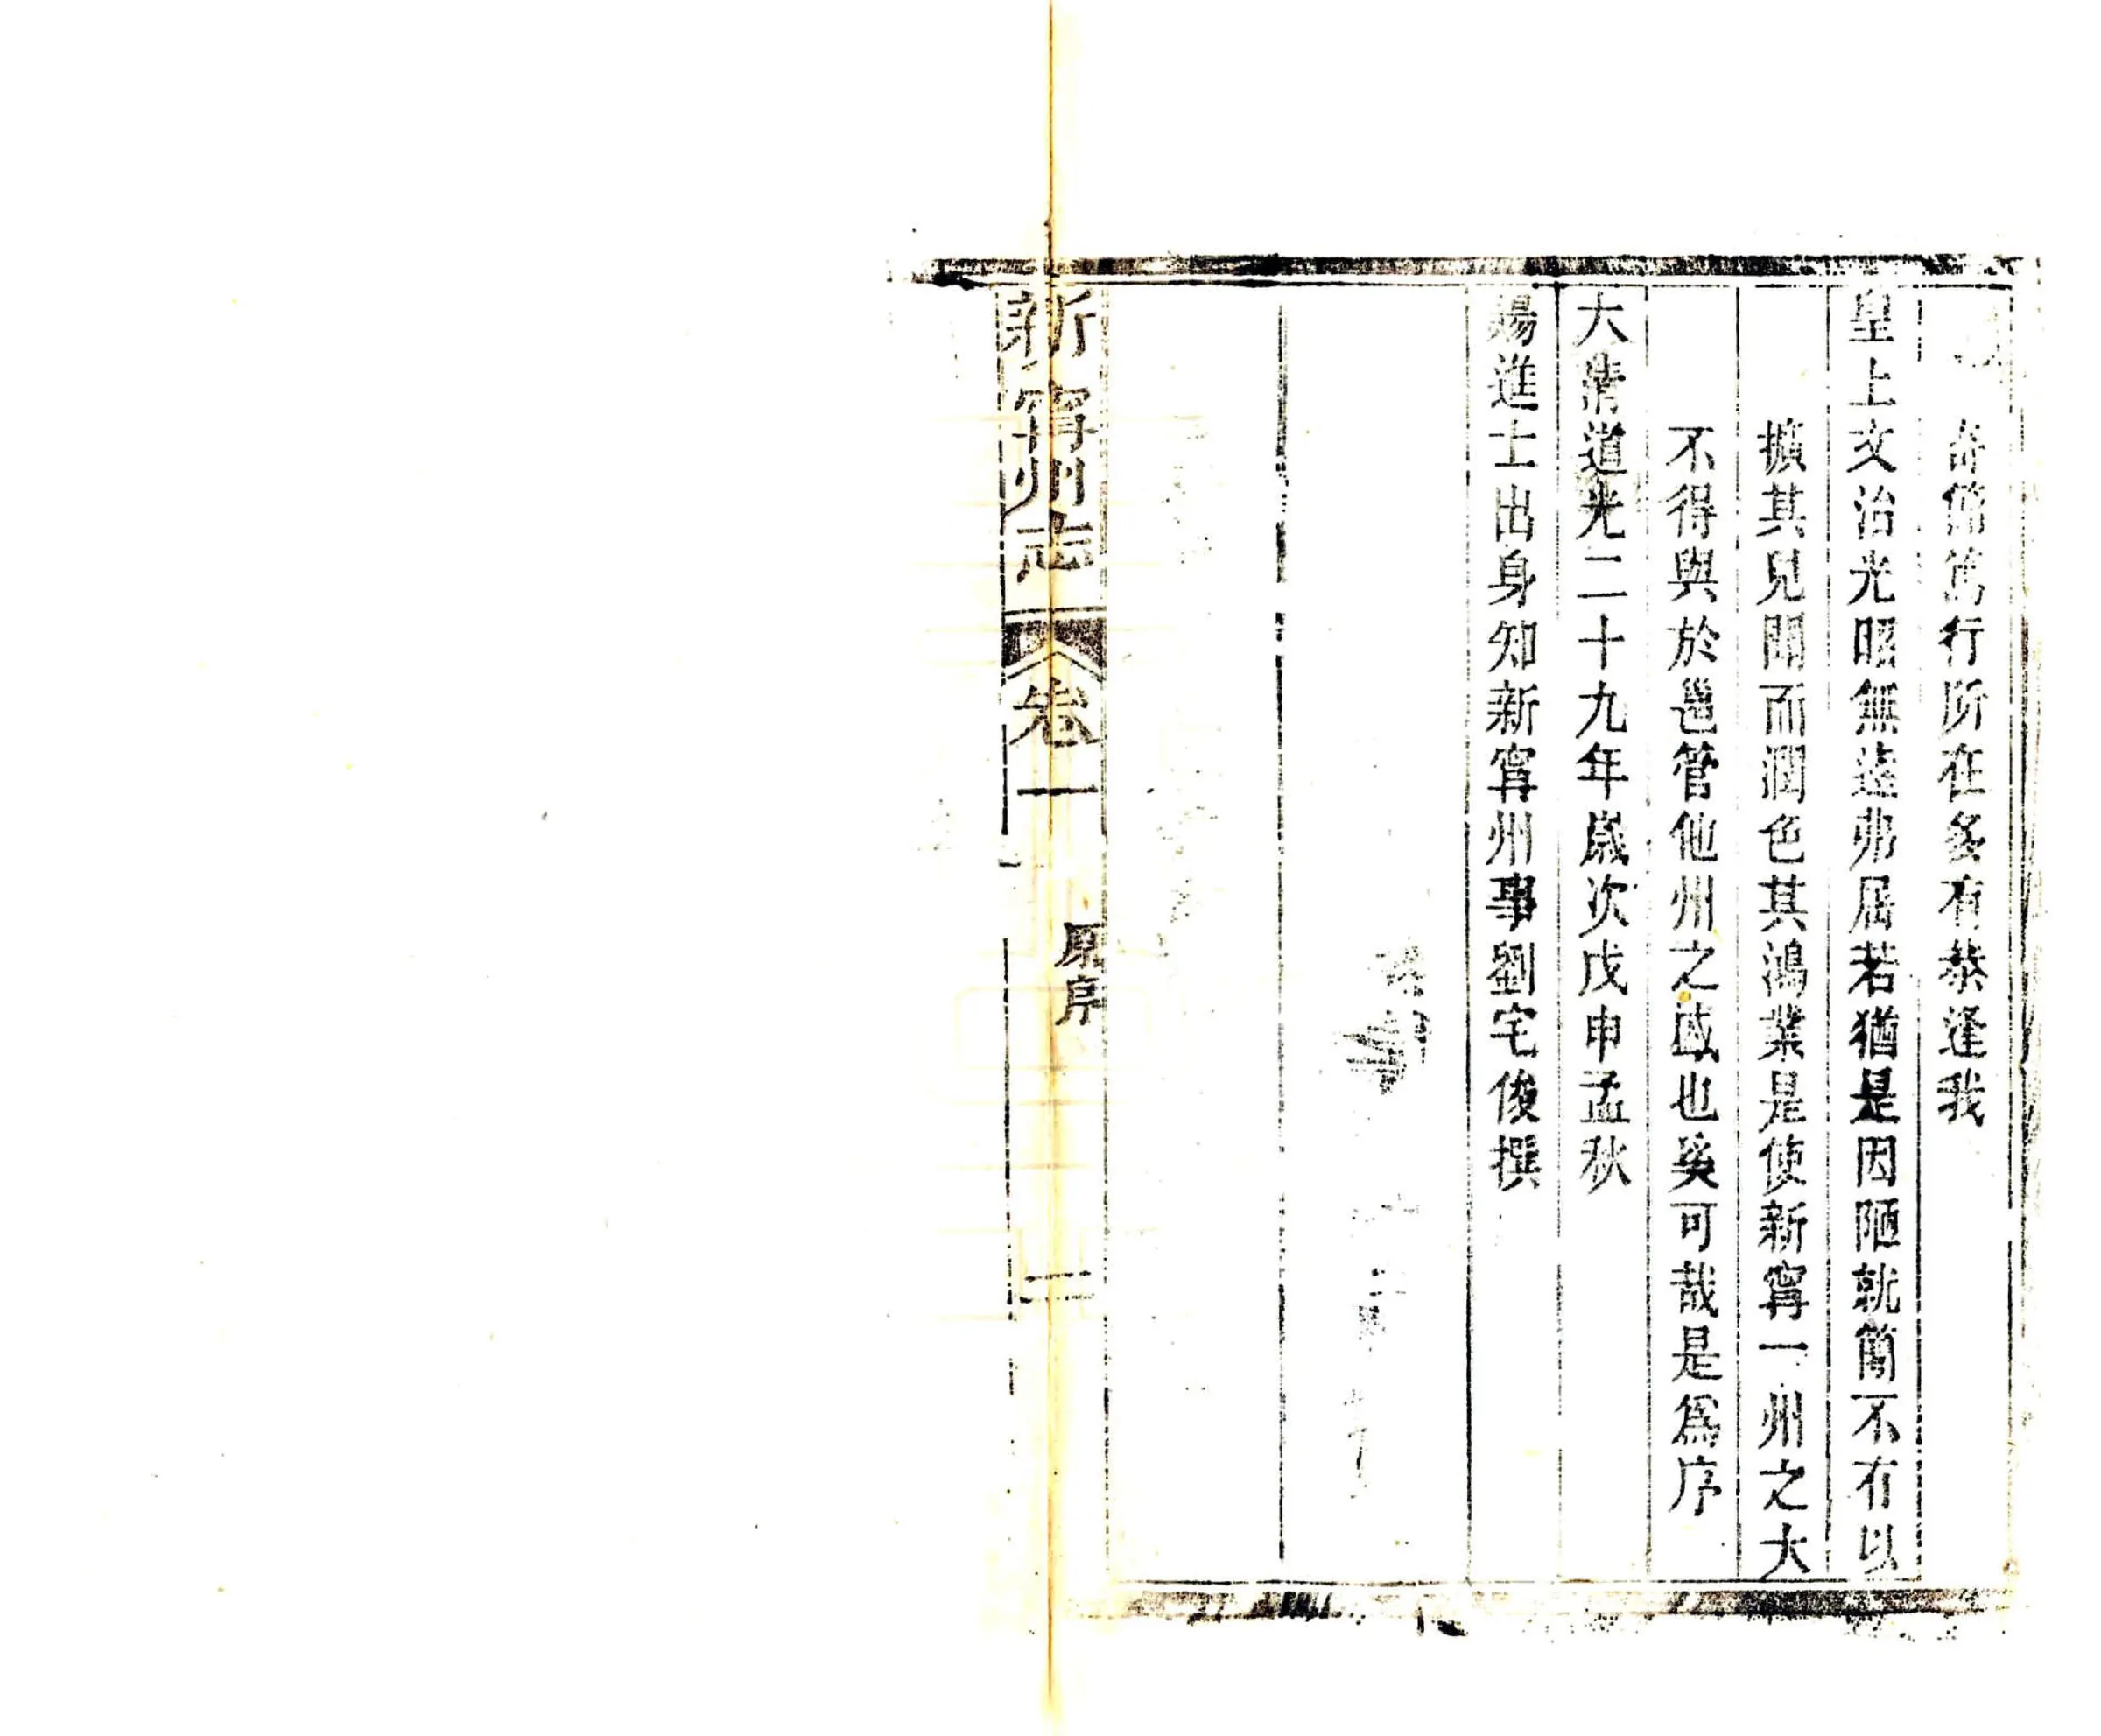 奇節篤行所在多有恭逢我
皇上文治光昭無遠弗屆若猶是因陋就簡不有以
擴其見聞而潤色其鴻業是使新甯一州之大
不得與於邕管他州之盛也奚可哉是爲序
大清道光二十九年歲次戊申孟秋
賜進士出身知新甯州事劉宅俊撰
新甯州志
卷一
原序
二